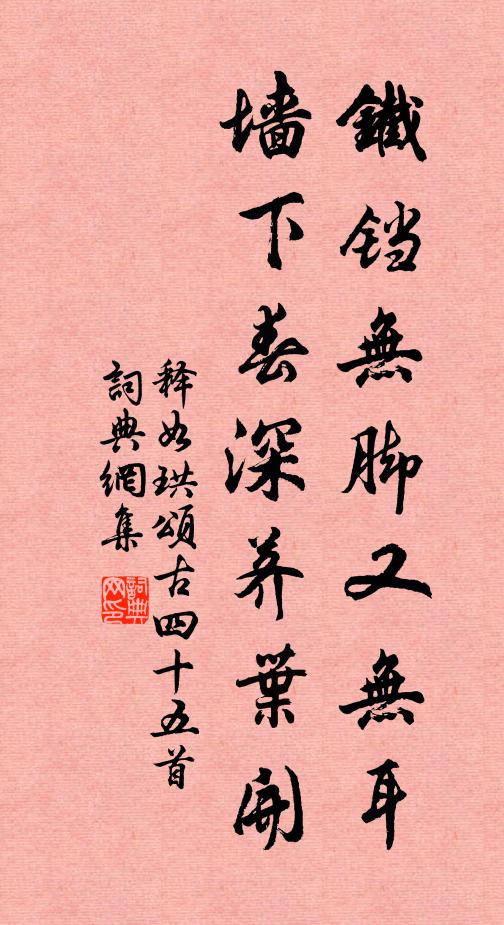 鐵铛無脚又無耳
墙下春深荠葉開
释如珙頌古四十五首
詞典網集
詞典网印